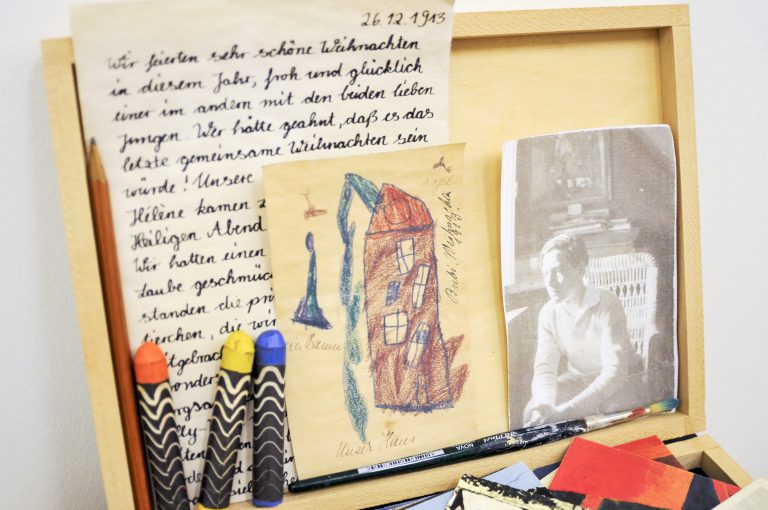 26.12.1913
Wir feierten sehr schöne Weihnachten
in diesem Jahr, froh und glücklich
einer im andern mit den beiden lieben
Jungen. Wer hätte geahnt, daß es das
letzte gemeinsame Weihnachten sein
würde! Unsere
Hélène kamen z
Heiligen Abend
Wir hatten einen
Laube geschmüc
standen die pri
tierchen, die wir
itgebrach
onder
Baum
Unser Haus
NOVA